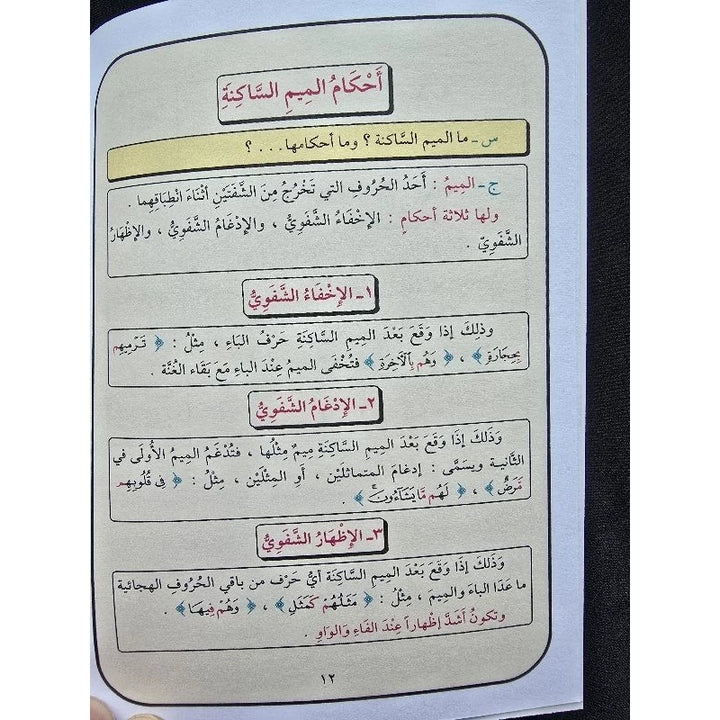 أَحْكَامُ المِيمِ السَّاكِنَةِ
س ـ ما الميم السَّاكنة ؟ وما أحكامها . . . ؟
ج ـ الميمُ : أَحَدُ الحُرُوفِ التي تَخْرُجُ مِنَ الشَّفَتَيْنِ أثْنَاءَ انْطِبَاقِهِما .
ولها ثلاثة أحكامٍ : الإخْفَاءُ الشَّفَوِيُّ ، والإدْغَامُ الشَّفَوِيُّ ، والإظْهَارُ
الشَّفَوِيّ .
١ـ الإِخْفَاءُ الشَّفَوِيُّ
وذلِكَ إذا وَقَعَ بَعْدَ الميمِ السَّاكِنَةِ حَرْفُ البَاءِ ، مِثْلُ : ﴿ تَرْمِيهِم
بِحِجَارَةٍ ﴾ ، ﴿ وَهُم بِالْآخِرَةِ ﴾ فتُخْفَى الميمُ عِنْدَ الباءِ مَعَ بَقَاءِ الغُنَّة .
٢ـ الإِدْغَامُ الشَّفَوِيُّ
وَذَلَكَ إذَا وَقَعَ بَعْدَ الميمِ السَّاكِنَةِ مِيمٌ مِثْلُها ، فَتُدْغَمُ المِيمُ الأُولَى في
الثَّانِية ويسَمَّى : إدغامَ المتماثلَيْن ، أو المِثْلَيْن ، مِثْلُ : ﴿ فِى قُلُوبِهِم
مَرَضٌ ﴾ ، ﴿ لَهُم مَّا يَشَآءُونَ ﴾ .
٣ـ الإِظْهَارُ الشَّفَوِيُّ
وَذَلكَ إذَا وَقَعَ بَعْدَ الميمِ السَّاكنَة أيُّ حَرْف من باقي الحُرُوفِ الهجائية
ما عَدَا الباءَ والمِيمَ ، مِثْلُ : ﴿ مَثَلُهُمْ كَمَثَلِ ﴾ ، ﴿ وَهُمْ فِيهَا ﴾ .
وتكونُ أشَدَّ إظْهاراً عِنْدَ الفَاءِ وَالوَاوِ .
١٢